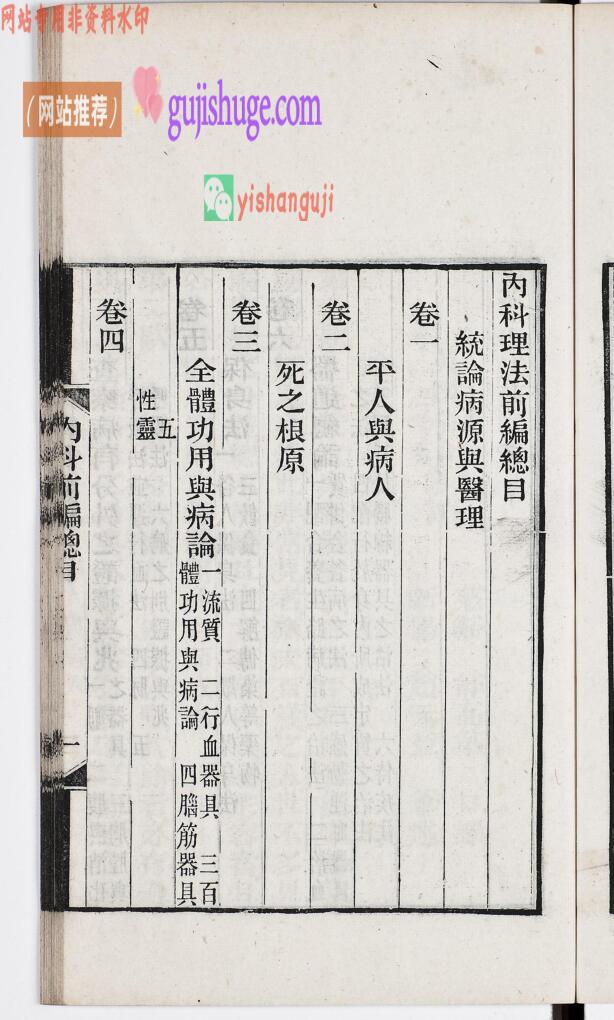 网站专用非资料水印
（网站推荐）
gujishuge.com
yishanguji
內科理法前編總目
統論病源與醫理
卷一
平人與病人
卷二
死之根原
卷三
全體功用與病論 一流質 二行血器具 三百
體功用與病論 四腦筋器具
五
性靈
卷四
內科前編總目
一